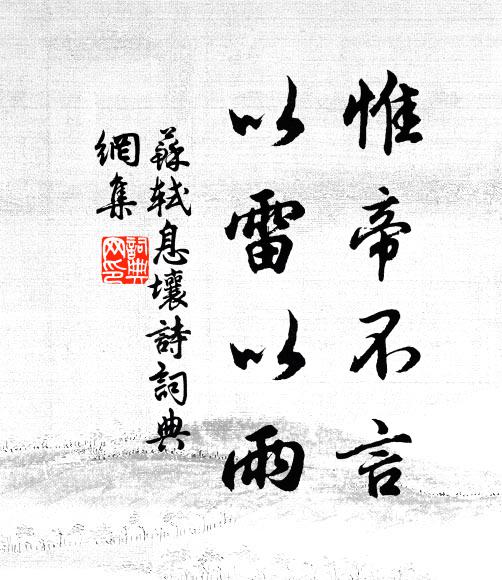 惟帝不言
以雷以雨
蘇軾息壤詩詞典
網集
詞典
网印